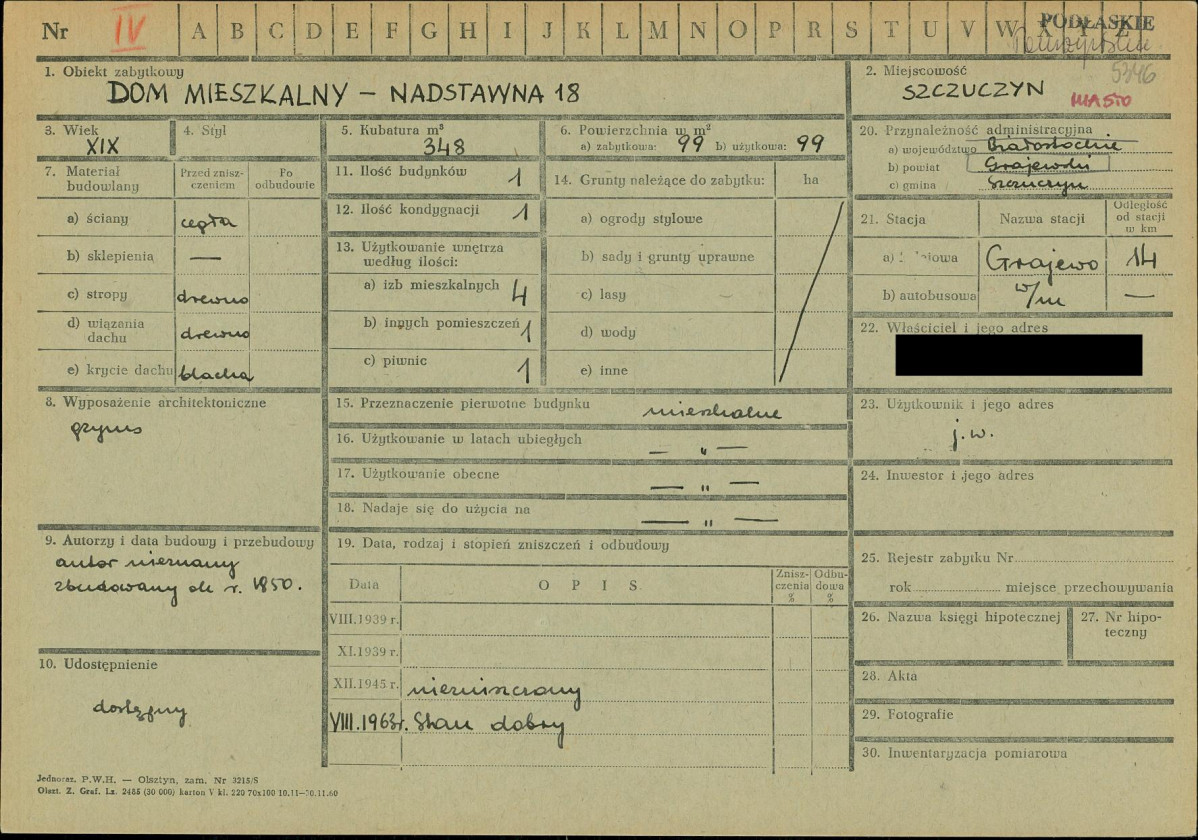 Nr IV A B C D E F G H I J K L M N O P R S T U V W X Y Z
PODLASKIE
5346
1. Obiekt zabytkowy
DOM MIESZKALNY – NADSTAWNA 18
2. Miejscowość
SZCZUCZYN
MIASTO
3. Wiek
XIX
4. Styl
5. Kubatura m³
348
6. Powierzchnia w m²
a) zabytkowa: 99 b) użytkowa: 99
20. Przynależność administracyjna
a) województwo Białostockie
b) powiat Grajewski
c) gmina Szczuczyn
7. Materiał budowlany
Przed znisz-
czeniem
Po
odbudowie
a) ściany cegła
b) sklepienia —
c) stropy drewno
d) wiązania
dachu drewno
e) krycie dachu blacha
11. Ilość budynków 1
12. Ilość kondygnacji 1
13. Użytkowanie wnętrza
według ilości:
a) izb mieszkalnych 4
b) innych pomieszczeń 1
c) piwnic 1
14. Grunty należące do zabytku: ha
a) ogrody stylowe
b) sady i grunty uprawne
c) lasy
d) wody
e) inne
21. Stacja Nazwa stacji
Odległość
od stacji
w km
a) Grajewo 14
b) autobusowa w/m —
22. Właściciel i jego adres
8. Wyposażenie architektoniczne
gzyms
15. Przeznaczenie pierwotne budynku mieszkalne
16. Użytkowanie w latach ubiegłych — „ —
17. Użytkowanie obecne — „ —
18. Nadaje się do użycia na — „ —
23. Użytkownik i jego adres
j.w.
24. Inwestor i jego adres
9. Autorzy i data budowy i przebudowy
autor nieznany
zbudowany ok r. 1850.
10. Udostępnienie
dostępny
19. Data, rodzaj i stopień zniszczeń i odbudowy
Data OPIS.
Znisz-
czenia
%
Odbu-
dowa
%
VIII.1939 r.
XI.1939 r.
XII.1945 r. niezniszczony
VIII.1963r. Stan dobry
25. Rejestr zabytku Nr
rok miejsce przechowywania
26. Nazwa księgi hipotecznej
27. Nr hipo-
teczny
28. Akta
29. Fotografie
30. Inwentaryzacja pomiarowa
Jednoraz. P.W.H. — Olsztyn, zam. Nr 3215/S
Olszt. Z. Graf. Lz. 2485 (30 000) karton V kl. 220 70x100 10.11—30.11.60